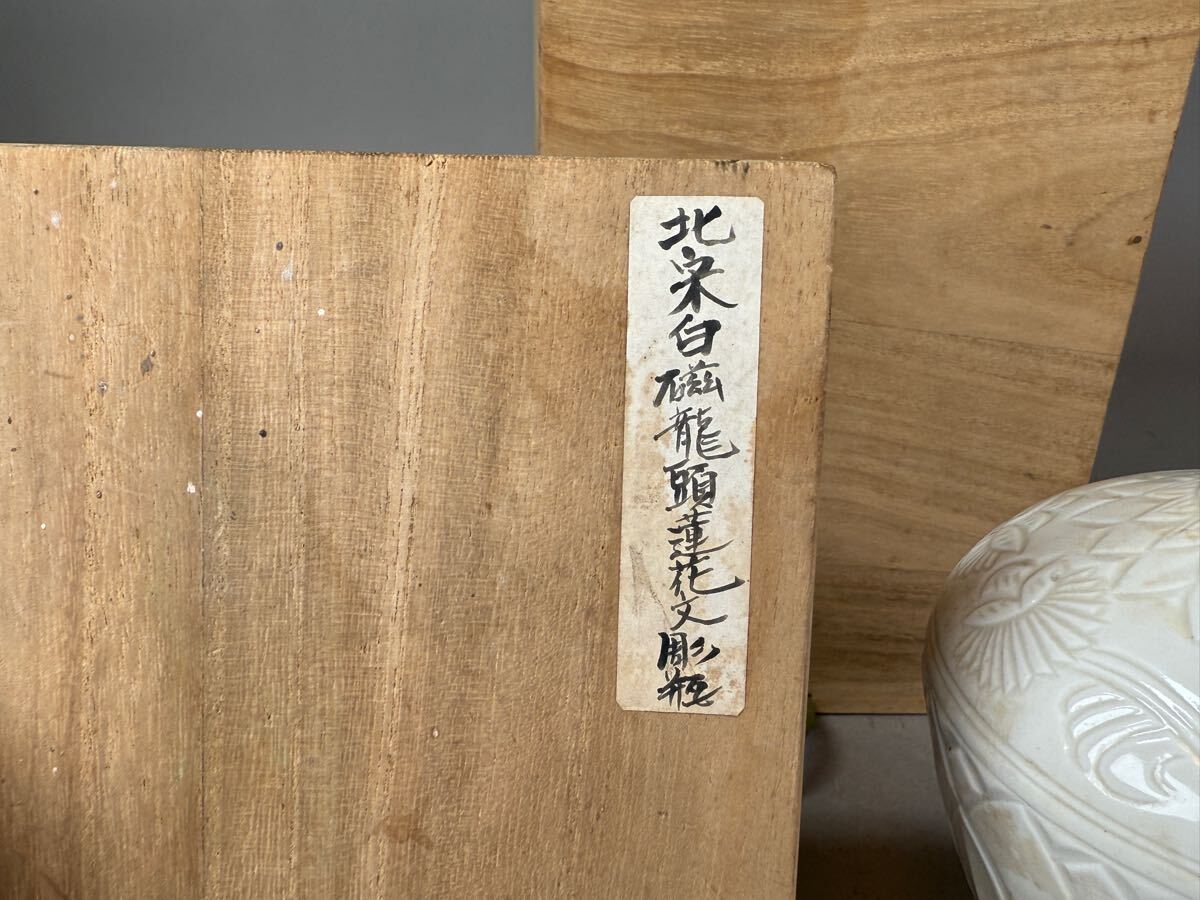 北宋白磁龍頭蓮花文彫瓶